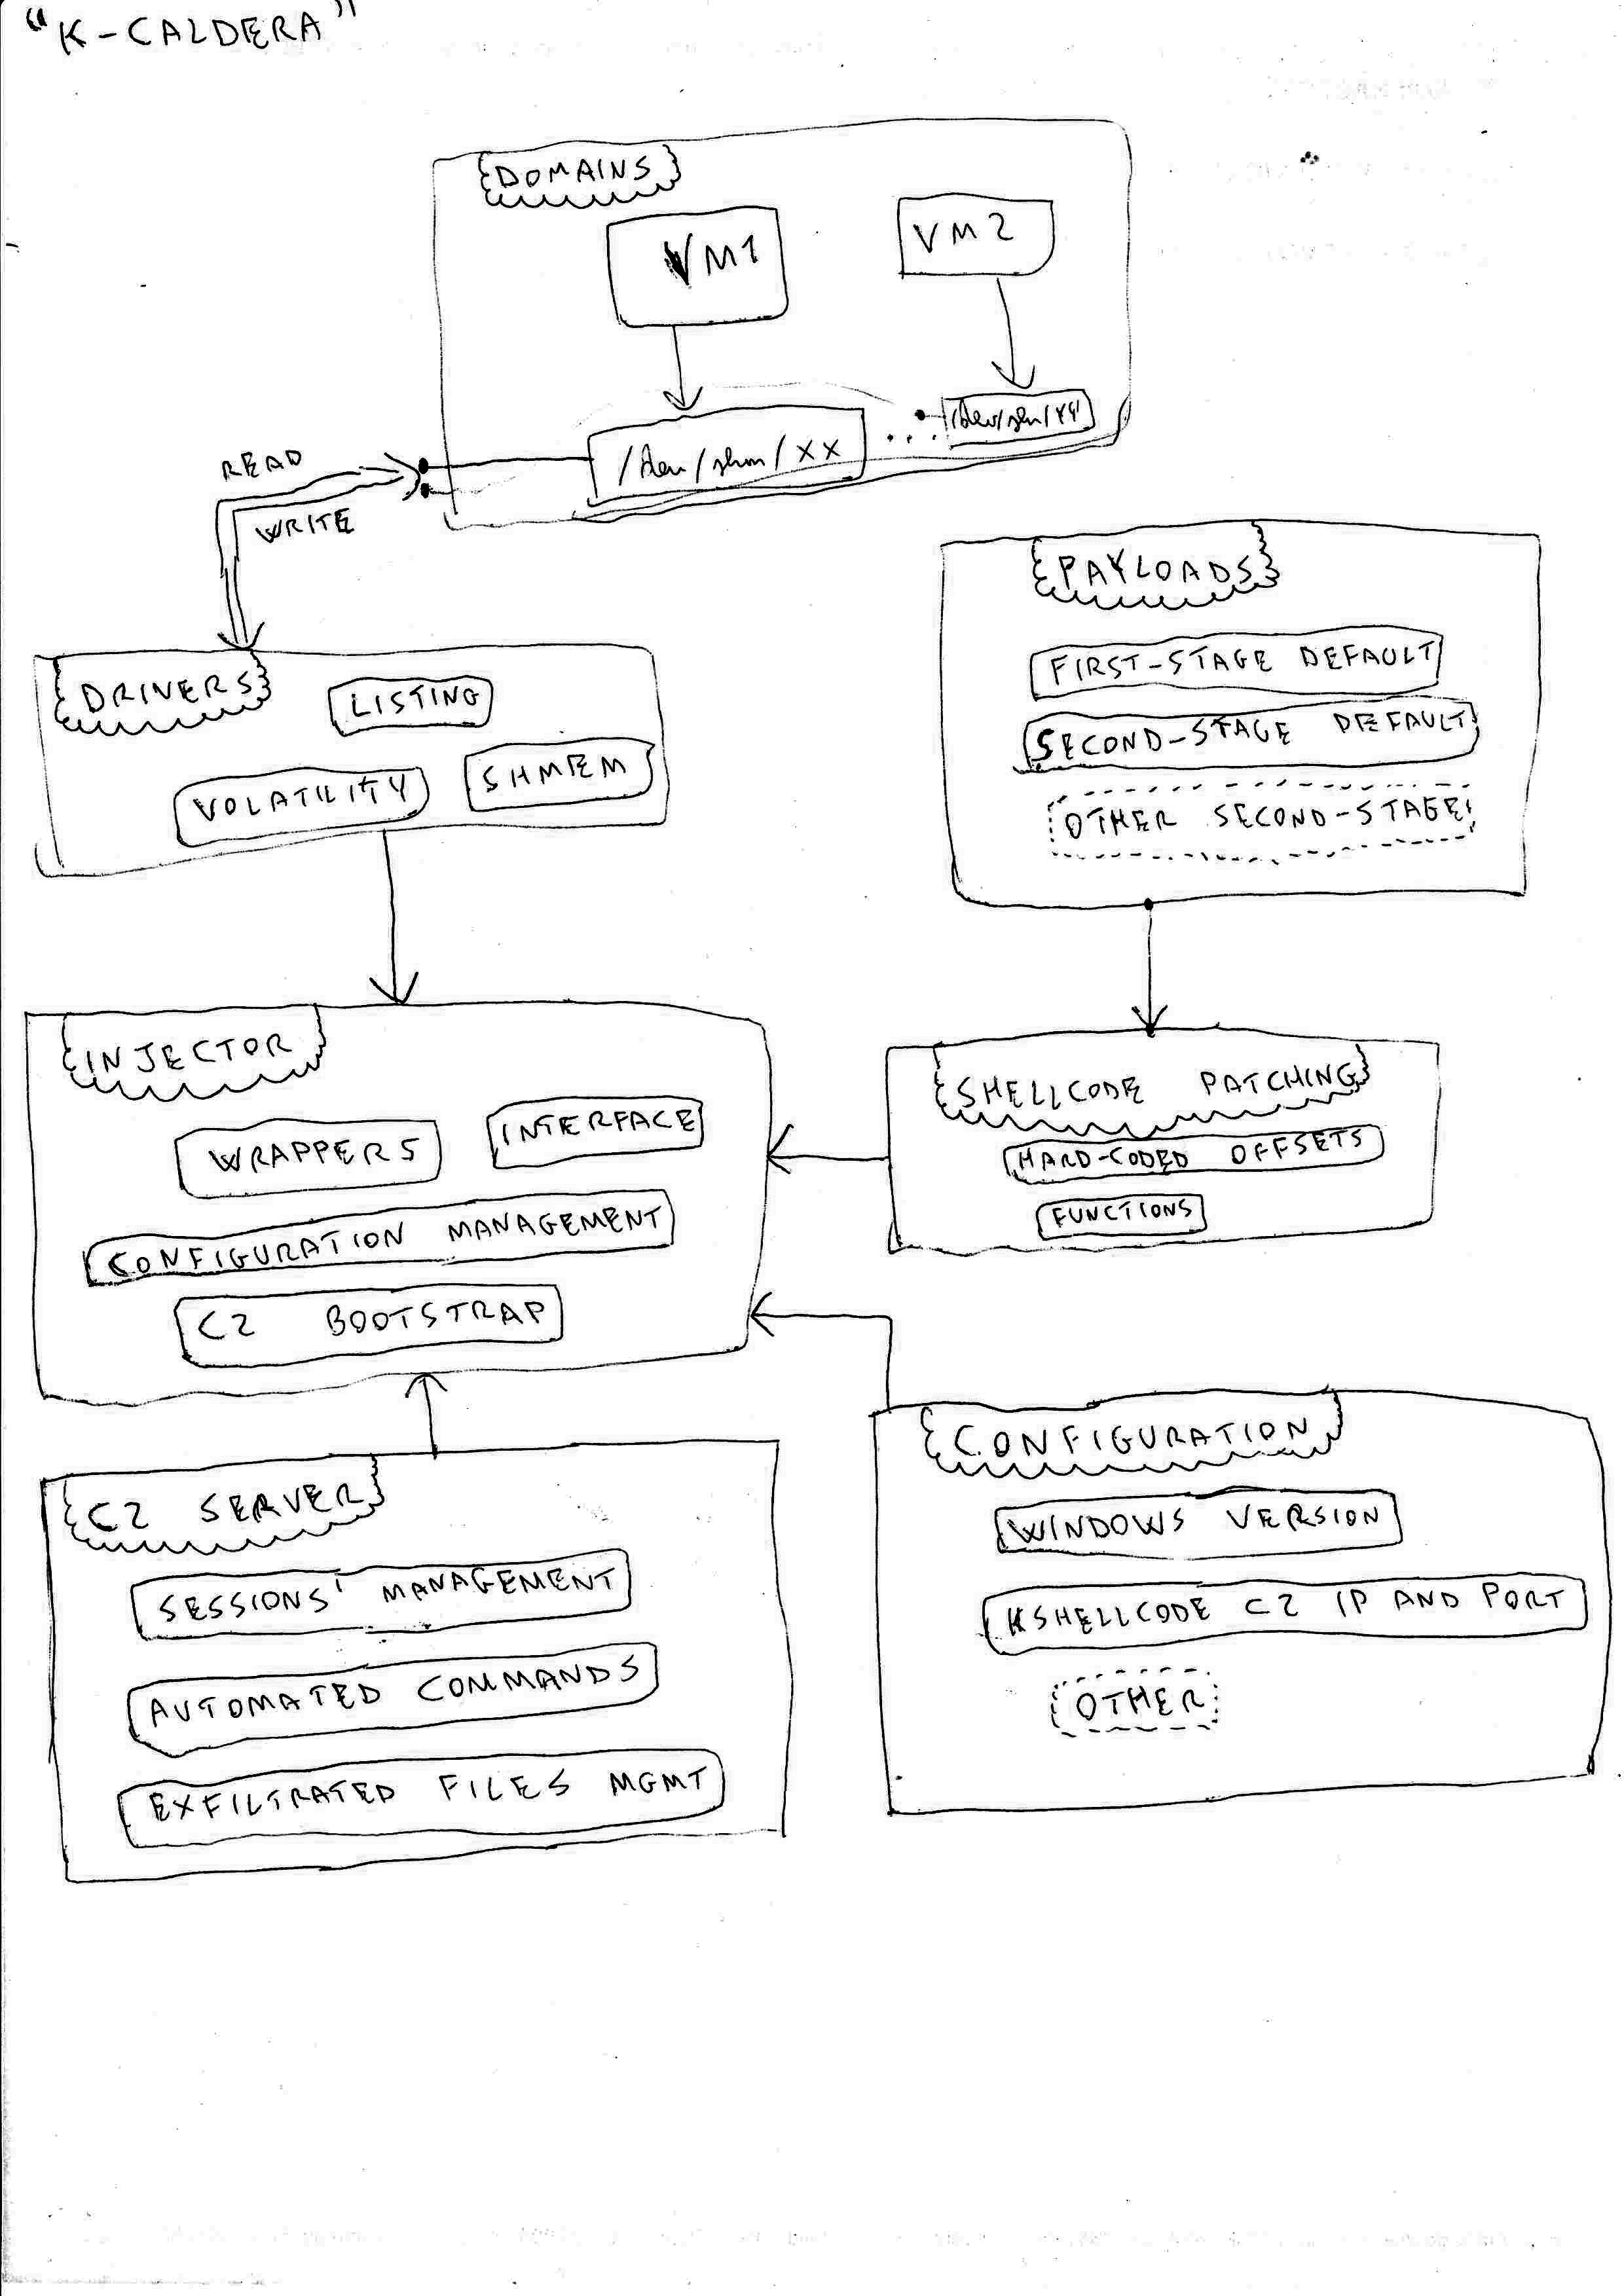 "K-CALDERA"
DOMAINS
VM1
VM2
/dev/shm/XX
/dev/shm/YY
READ
WRITE
PAYLOADS
FIRST-STAGE DEFAULT
SECOND-STAGE DEFAULT
OTHER SECOND-STAGE
DRIVERS
LISTING
VOLATILITY
SHMEM
INJECTOR
WRAPPERS
INTERFACE
CONFIGURATION MANAGEMENT
C2 BOOTSTRAP
SHELLCODE PATCHING
HARD-CODED OFFSETS
FUNCTIONS
C2 SERVER
SESSIONS' MANAGEMENT
AUTOMATED COMMANDS
EXFILTRATED FILES MGMT
CONFIGURATION
WINDOWS VERSION
KSHELLCODE C2 IP AND PORT
OTHER